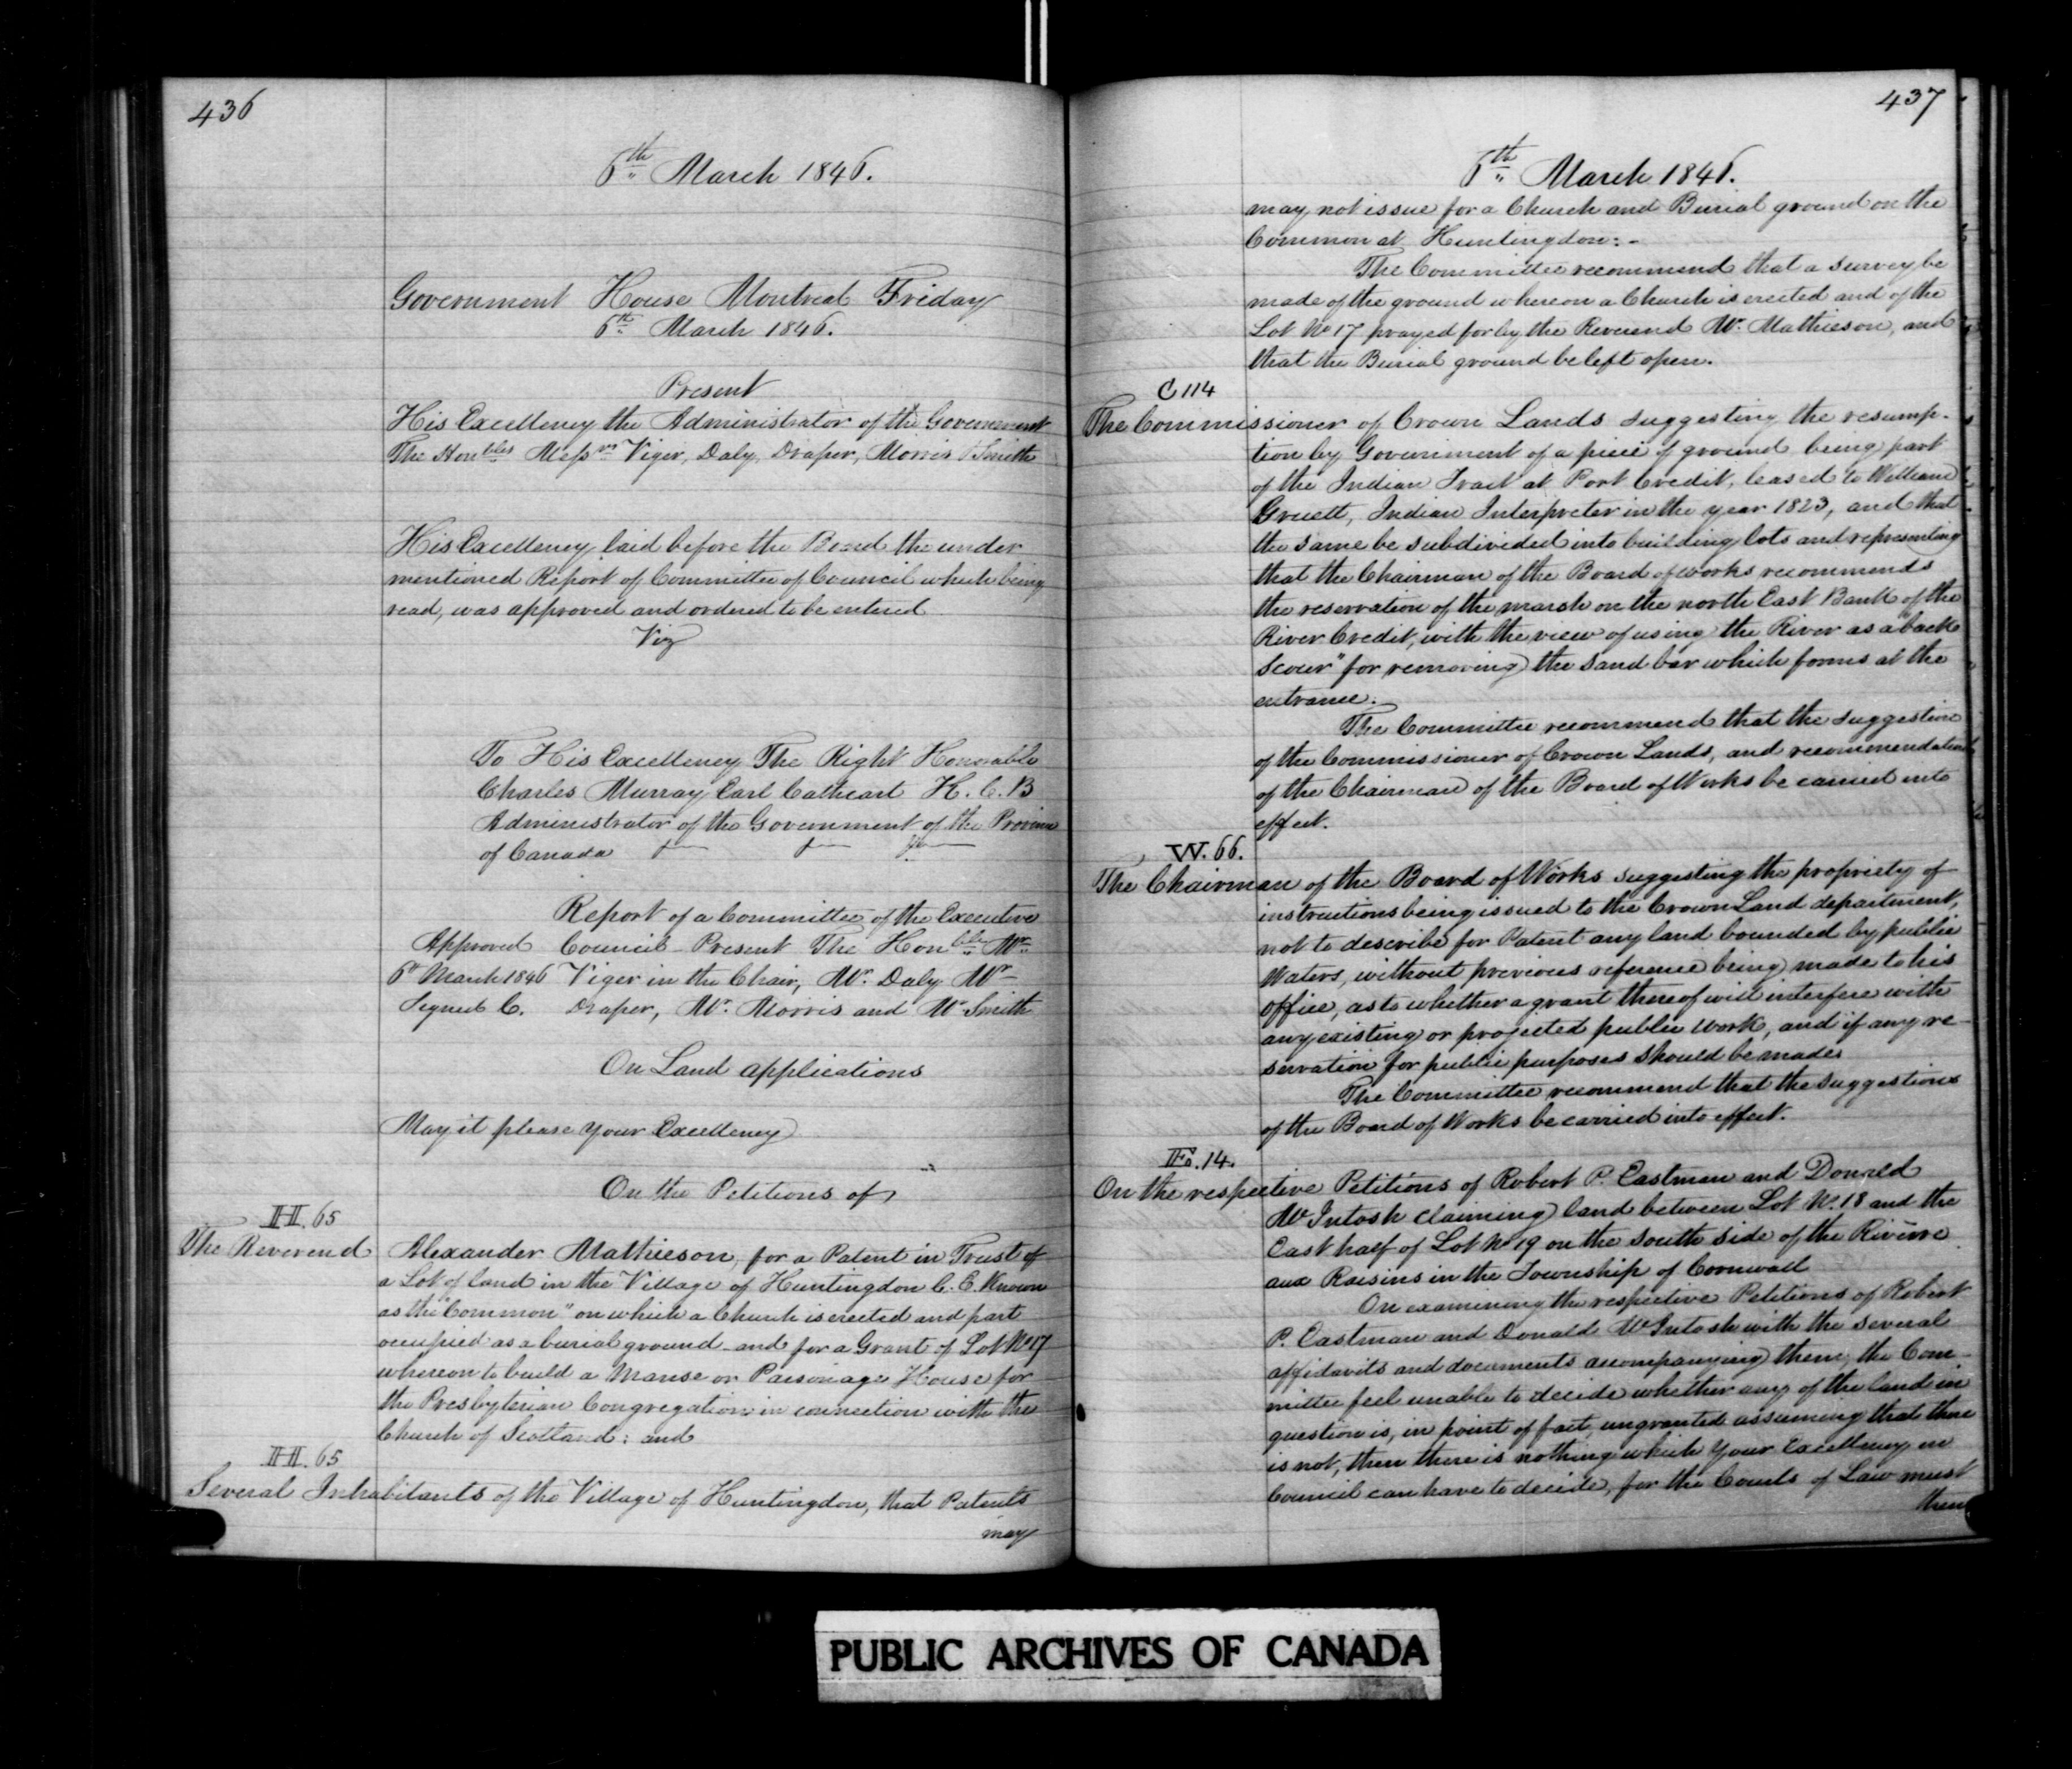 436
6th March 1846.
Government House Montreal Friday
6th March 1846.
Present
His Excellency the Administrator of the Government
The Honbles Messrs Viger, Daly, Draper, Morris & Smith
His Excellency laid before the Board the under
mentioned Report of Committee of Council which being
read, was approved and ordered to be entered
Viz
To His Excellency The Right Honorable
Charles Murray Earl Cathcart K. C. B
Administrator of the Government of the Province
of Canada
Report of a Committee of the Executive
Approved Council Present The Honble Mr
6th March 1846 Viger in the Chair, Mr. Daly Mr
Signed C. Draper, Mr. Morris and Mr Smith
On Land applications
May it please your Excellency
On the Petitions of
H. 65
The Reverend Alexander Mathieson, for a Patent in Trust of
a Lot of land in the Village of Huntingdon C. E. Known
as the "Common" on which a Church is erected and part
occupied as a burial ground and for a Grant of Lot No 17
whereon to build a Manse or Parsonage House for
the Presbyterian Congregation in connection with the
Church of Scotland: and
H. 65
Several Inhabitants of the Village of Huntingdon, that Patents
may
437
6th March 1846.
may not issue for a Church and Burial ground on the
Common at Huntingdon:-
The Committee recommend that a survey be
made of the ground whereon a Church is erected and of the
Lot No 17 prayed for by the Reverend Mr. Mathieson, and
that the Burial ground be left open.
C 114
The Commissioner of Crown Lands suggesting the resump-
tion by Government of a piece of ground being part
of the Indian Tract at Port Credit, leased to William
Gruett, Indian Interpreter in the year 1823, and that
the same be subdivided into building lots and representing
that the Chairman of the Board of works recommends
the reservation of the marsh on the north East Bank of the
River Credit, with the view of using the River as a "back
scour" for removing the sand bar which forms at the
entrance.
The Committee recommend that the suggestion
of the Commissioner of Crown Lands, and recommendation
of the Chairman of the Board of Works be carried into
effect.
W. 66.
The Chairman of the Board of Works suggesting the propriety of
instructions being issued to the Crown Land department,
not to describe for Patent any land bounded by public
Waters, without previous reference being made to his
office, as to whether a grant thereof will interfere with
any existing or projected public work, and if any re-
servation for public purposes should be made.
The Committee recommend that the suggestions
of the Board of Works be carried into effect.
E. 14.
On the respective Petitions of Robert P. Eastman and Donald
McIntosh claiming land between Lot No. 18 and the
East half of Lot No 19 on the south side of the Rivière
aux Raisins in the Township of Cornwall
On examining the respective Petitions of Robert
P. Eastman and Donald McIntosh with the several
affidavits and documents accompanying them, the Com-
mittee feel unable to decide whether any of the land in
question is, in point of fact, ungranted assuming that there
is not, then there is nothing which Your Excellency in
Council can have to decide, for the Courts of Law must
then
PUBLIC ARCHIVES OF CANADA